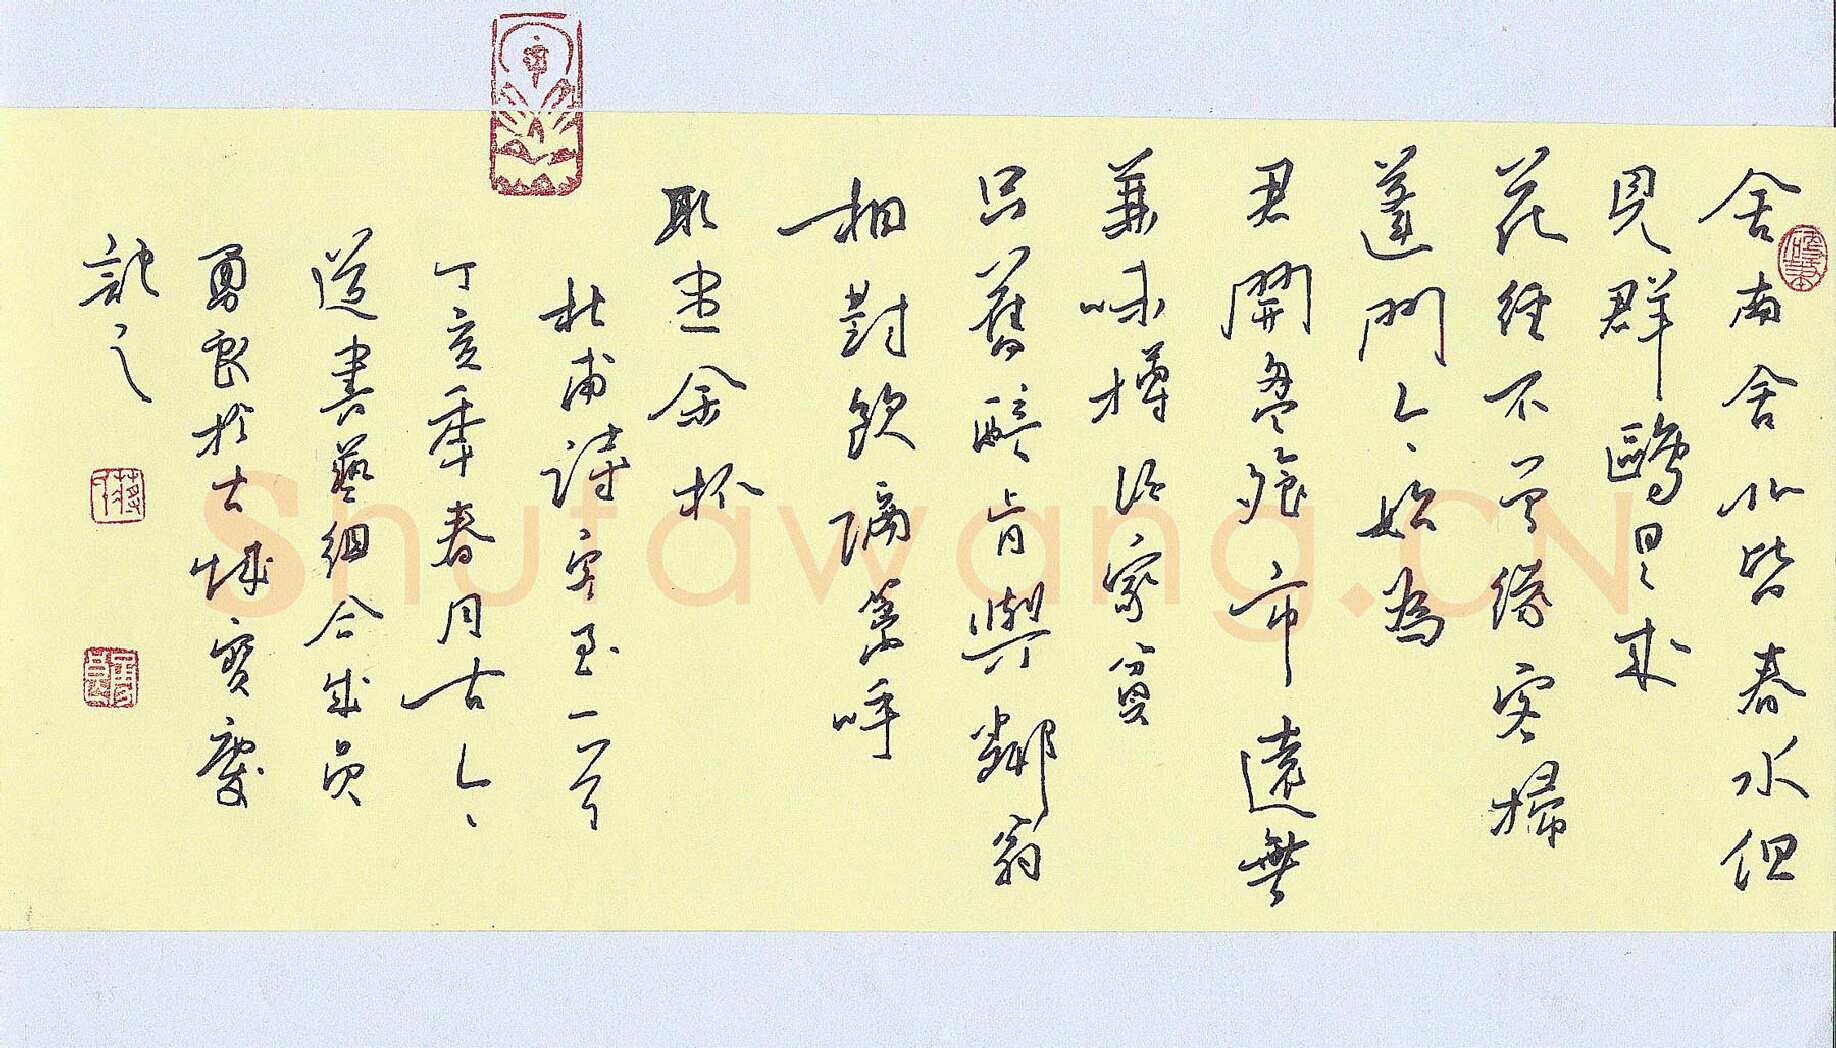 舍南舍北皆春水但
見群鷗日日來
花徑不曾緣客掃
蓬門今始為
君開盤飧市遠無
兼味樽酒家貧
只舊醅肯與鄰翁
相對飲隔籬呼
取盡余杯
杜甫詩客至一首
丁亥年春月古今
道書藝組合成員
勇良於古城寶慶
記之
Shufawang.CN